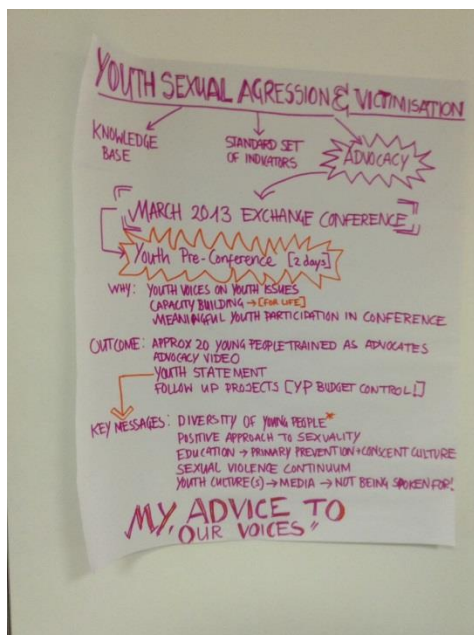 YOUTH SEXUAL AGRESSION & VICTIMISATION
KNOWLEDGE BASE
STANDARD SET OF INDICATORS
ADVOCACY
MARCH 2013 EXCHANGE CONFERENCE
Youth Pre-Conference [2 days]
WHY: YOUTH VOICES ON YOUTH ISSUES
CAPACITY BUILDING → [FOR LIFE]
MEANINGFUL YOUTH PARTICIPATION IN CONFERENCE
OUTCOME: APPROX 20 YOUNG PEOPLE TRAINED AS ADVOCATES
ADVOCACY VIDEO
YOUTH STATEMENT
FOLLOW UP PROJECTS [YP BUDGET CONTROL!]
KEY MESSAGES: DIVERSITY OF YOUNG PEOPLE*
POSITIVE APPROACH TO SEXUALITY
EDUCATION → PRIMARY PREVENTION + CONSCENT CULTURE
SEXUAL VIOLENCE CONTINUUM
YOUTH CULTURE(S) → MEDIA → NOT BEING SPOKEN FOR!
MY, ADVICE TO
OUR VOICES"